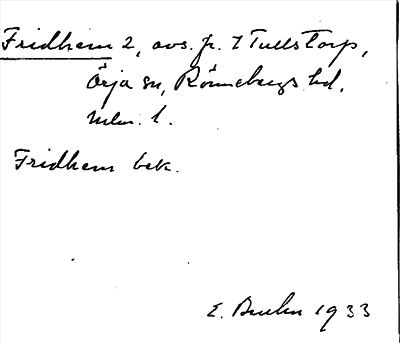 Fridhem 2, avs. fr. 7 Tullstorp,
Örja sn, Rönnebergs hd,
Mlm. l.
Fridhem bek.
E. Bruhn 1933